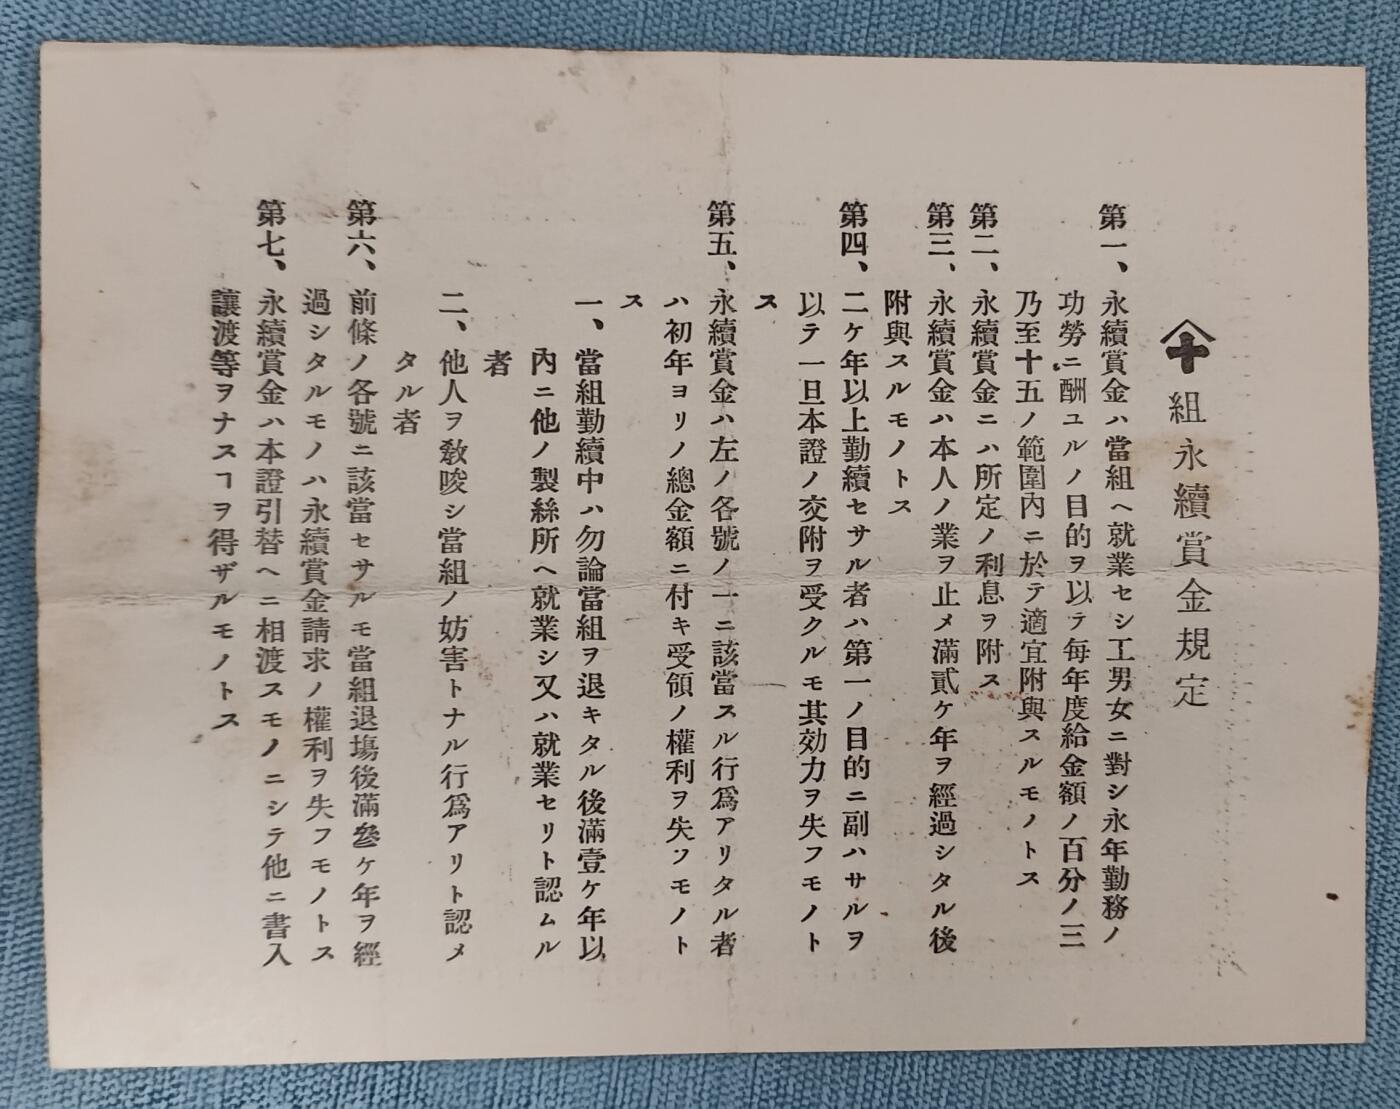 組永續賞金規定
第一、永續賞金ハ當組ヘ就業セシ工男女ニ對シ永年勤務ノ
功勞ニ酬ユルノ目的ヲ以テ每年度給金額ノ百分ノ三
乃至十五ノ範圍內ニ於テ適宜附與スルモノトス
第二、永續賞金ニハ所定ノ利息ヲ附ス
第三、永續賞金ハ本人ノ業ヲ止メ滿貳ケ年ヲ經過シタル後
附與スルモノトス
第四、二ケ年以上勤續セサル者ハ第一ノ目的ニ副ハサルヲ
以テ一旦本證ノ交附ヲ受クルモ其効力ヲ失フモノト
ス
第五、永續賞金ハ左ノ各號ノ一ニ該當スル行爲アリタル者
ハ初年ヨリノ總金額ニ付キ受領ノ權利ヲ失フモノト
ス
一、當組勤續中ハ勿論當組ヲ退キタル後滿壹ケ年以
內ニ他ノ製絲所ヘ就業シ又ハ就業セリト認ムル
者
二、他人ヲ敎唆シ當組ノ妨害トナル行爲アリト認メ
タル者
第六、前條ノ各號ニ該當セサルモ當組退塲後滿參ケ年ヲ經
過シタルモノハ永續賞金請求ノ權利ヲ失フモノトス
第七、永續賞金ハ本證引替ヘニ相渡スモノニシテ他ニ書入
讓渡等ヲナスヿヲ得ザルモノトス